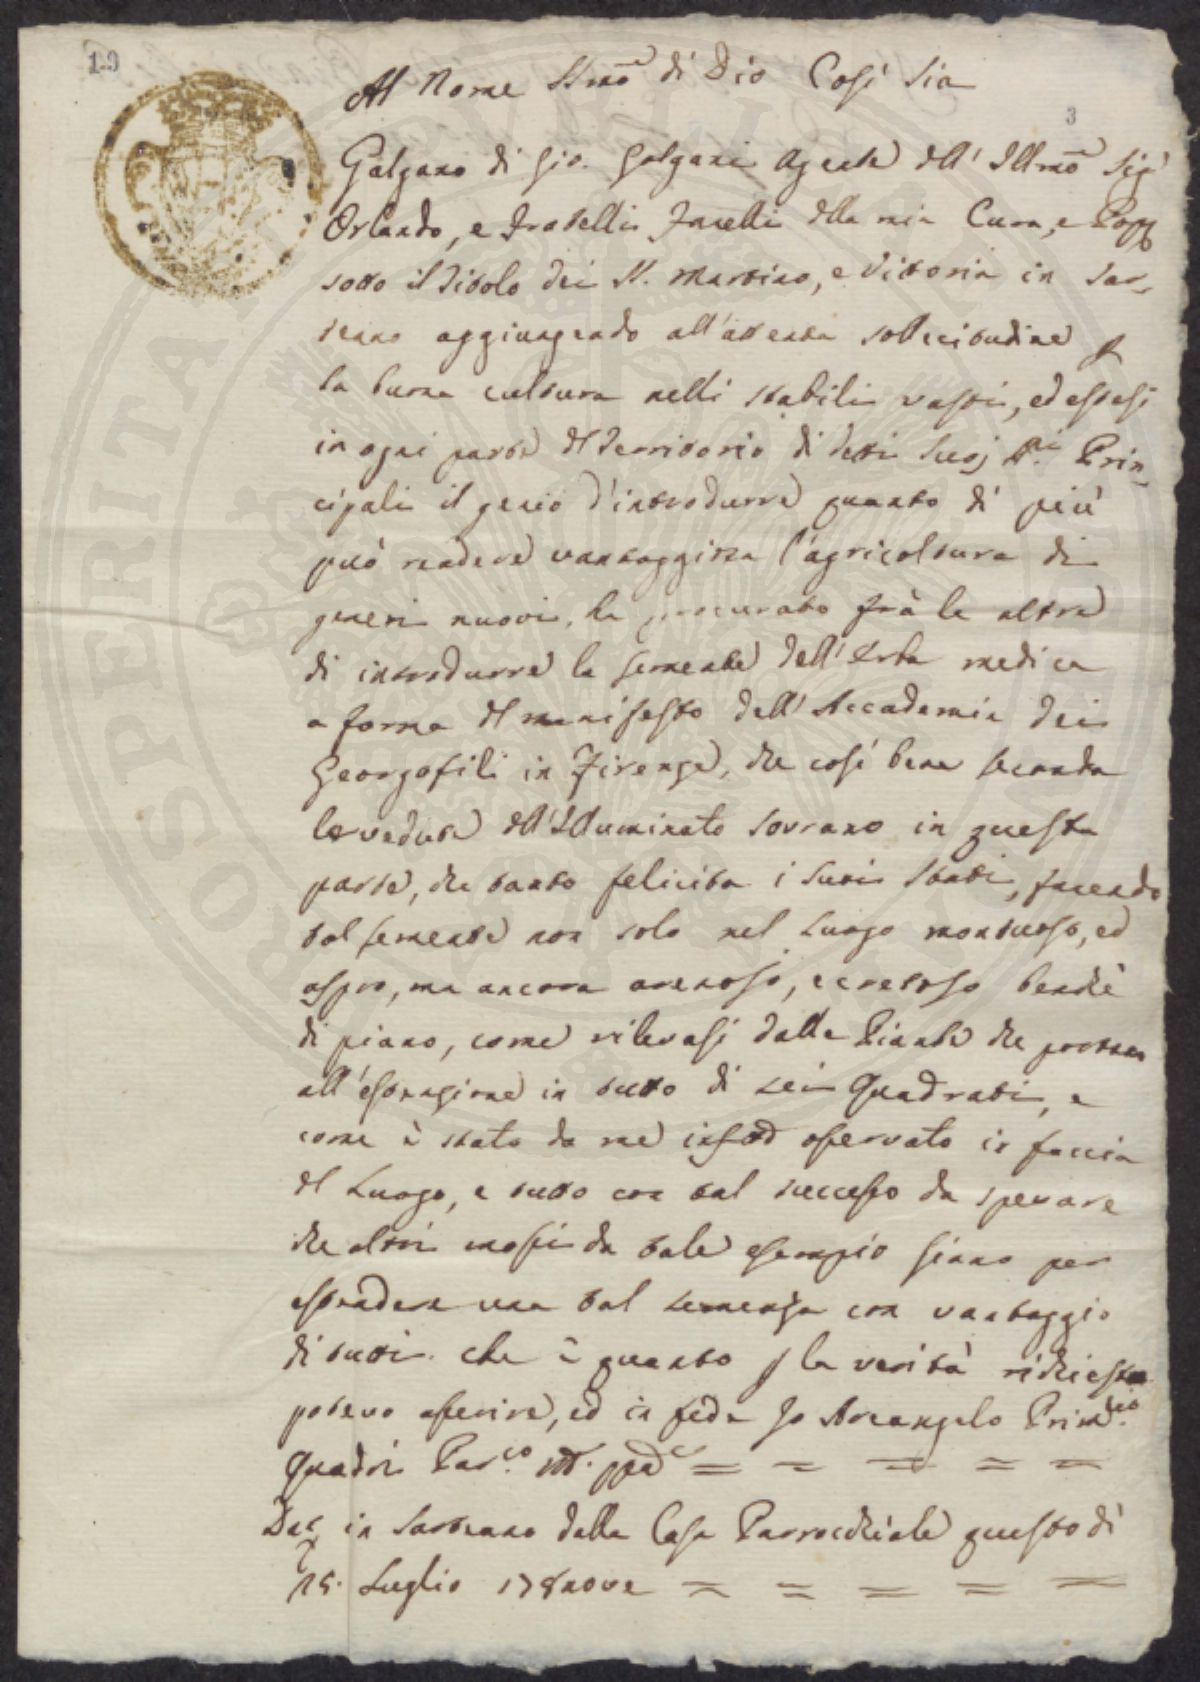 19
3
Al Nome SSmo di Dio Così Sia
Galgano di Gio. Galgani Agente dell' Illmo Sigr
Orlando, e Fratelli Fanelli della mia Cura, e
sotto il Titolo dei SS. Martino, e Vittoria in Sar-
teano aggiungendo all'attenta sollecitudine p
la buona cultura nelli stabili vasti, ed estesi
in ogni parte del Territorio di detti Suoj SSri Prin-
cipali il genio d'introdurre quanto di più
può rendere vantaggiosa l'agricoltura di
generi nuovi, ha procurato frà le altre
di introdurre la semente dell'Erba medica
a forma del manifesto dell'Accademia dei
Georgofili in Firenze, che così bene seconda
le vedute dell'Illuminato Sovrano in questa
parte, che tanto felicita i suoi Stati, facendo
tal semente non solo nel Luogo montuoso, ed
aspro, ma ancora arenoso, e cretoso benchè
di piano, come rilevasi dalle Piante che
all'estrazione in tutto di sei Quadrati, e
come è stato da me osservato in faccia
del Luogo, e tutto con tal successo da sperare
che altri mossi da tale esempio siano per
estendere una tal semenza con vantaggio
di tutti. che è quanto p la verità richiesto
potevo asserire, ed in fede Io Arcangelo
Quadri Par.co =====
Dat. in Sarteano dalla Casa Parrocchiale questo dì
15. Luglio 178nove =====